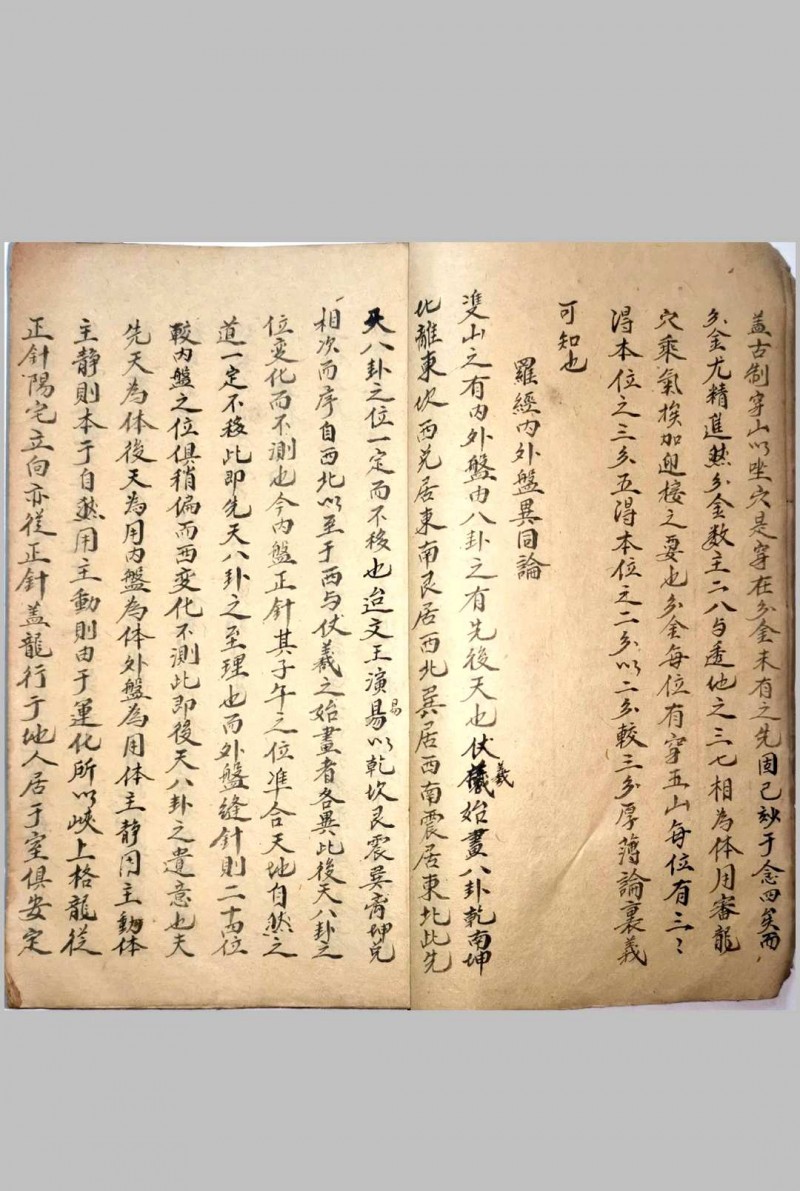 盖古制穿山以坐穴是穿在分金未有之先固已妙于念四矣而
分金尤精進然分金数主二八与透地之三七相為体用審龍
穴乘氣挨加迎接之要也分金每位有穿五山每位有三〻
得本位之三分五得本位之二分以二分較三分厚薄論裏義
可知也
羅經内外盤異同論
雙山之有内外盤由八卦之有先後天也伏羲始畫八卦乾南坤
北離東坎西兑居東南艮居西北巽居西南震居東北此先
天八卦之位一定而不移也迨文王演易以乾坎艮震巽离坤兑
相次而序自西北以至于西与伏羲之始畫者各異此後天八卦之
位变化而不測也今内盤正針其子午之位准合天地自然之
道一定不移此即先天八卦之至理也而外盤縫針則二十四位
較内盤之位俱稍偏而西变化不測此即後天八卦之遺意也夫
先天為体後天為用内盤為体外盤為用体主静用主動体
主静則本于自然用主動則由于運化所以峽上格龍從
正針陽宅立向亦從正針盖龍行于地人居于室俱安定